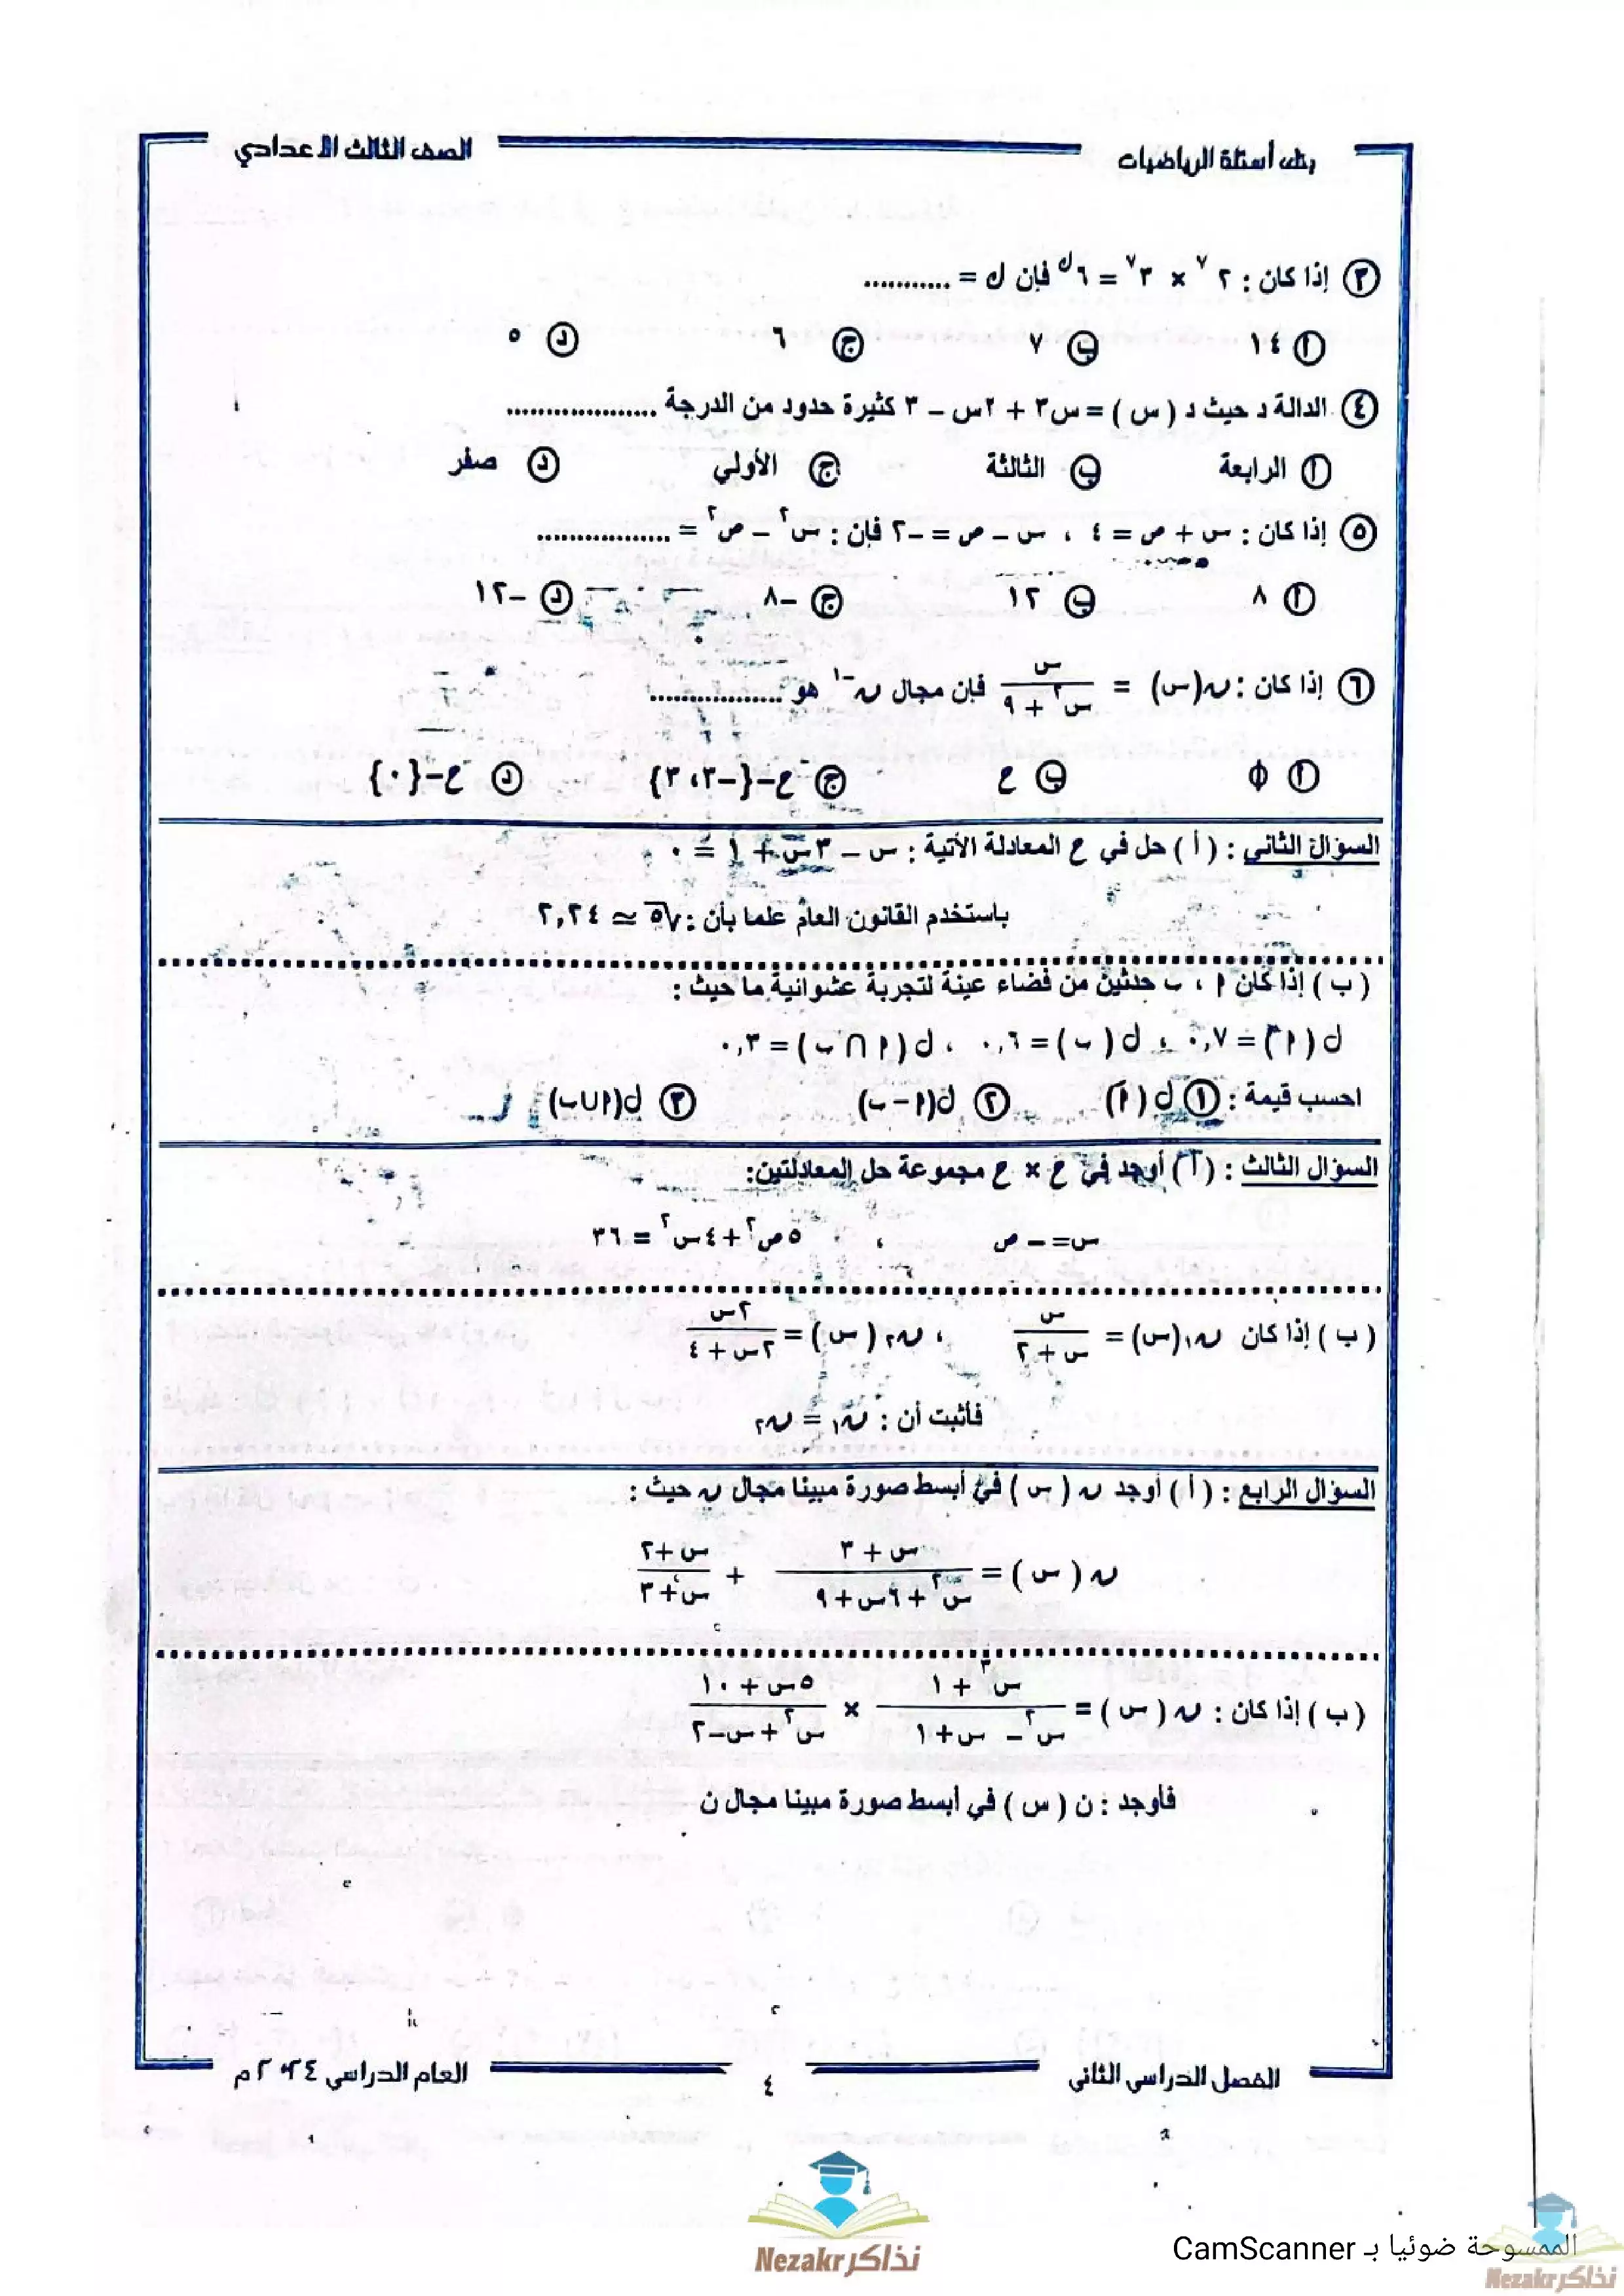 بنك أسئلة الرياضيات الصف الثالث الاعدادي
٣ إذا كان : ٢^٧ × ٣^٧ = ٦^ك فإن ك = ...........
أ ١٤ ب ٧ ج ٦ د ٥
٤ الدالة د حيث د ( س ) = س٣ + ٢س – ٣ كثيرة حدود من الدرجة ...................
أ الرابعة ب الثالثة ج الأولي د صفر
٥ إذا كان : س + ص = ٤ ، س – ص = –٢ فإن : س^٢ – ص^٢ = .................
أ ٨ ب ١٢ ج –٨ د –١٢
٦ إذا كان : ن(س) = س / (س^٢ + ٩) فإن مجال ن^–١ هو .................
أ Φ ب ع ج ع–{–٣، ٣} د ع–{٠}
السؤال الثاني : ( أ ) حل في ع المعادلة الآتية : س – ٣س + ١ = ٠
باستخدم القانون العام علما بأن : √٥ ≃ ٢,٢٤
( ب ) إذا كان ا ، ب حدثين من فضاء عينة لتجربة عشوانية ما حيث :
ل ( ا ) = ٠,٧ ، ل ( ب ) = ٠,٦ ، ل ( ا ∩ ب ) = ٠,٣
احسب قيمة : ١ ل ( اَ ) ٢ ل(ا – ب) ٣ ل(ا∪ب)
السؤال الثالث : ( أ ) أوجد في ع × ع مجموعة حل المعادلتين:
س = – ص ، ٥ص^٢ + ٤س^٢ = ٣٦
( ب ) إذا كان ن١(س) = س / (س + ٢) ، ن٢ ( س ) = ٢س / (٢س + ٤)
فأثبت أن : ن١ = ن٢
السؤال الرابع : ( أ ) أوجد ن ( س ) في أبسط صورة مبينا مجال ن حيث :
ن ( س ) = (س + ٣) / (س^٢ + ٦س + ٩) + (س + ٢) / (س + ٣)
( ب ) إذا كان : ن ( س ) = (س^٣ + ١) / (س^٢ – س + ١) × (٥س + ١٠) / (س^٢ + س – ٢)
فأوجد : ن ( س ) في أبسط صورة مبينا مجال ن
الفصل الدراسي الثاني ٤ العام الدراسي ٢٠٢٤م
نذاكر Nezakr
الممسوحة ضوئيا بـ CamScanner
نذاكر Nezakr